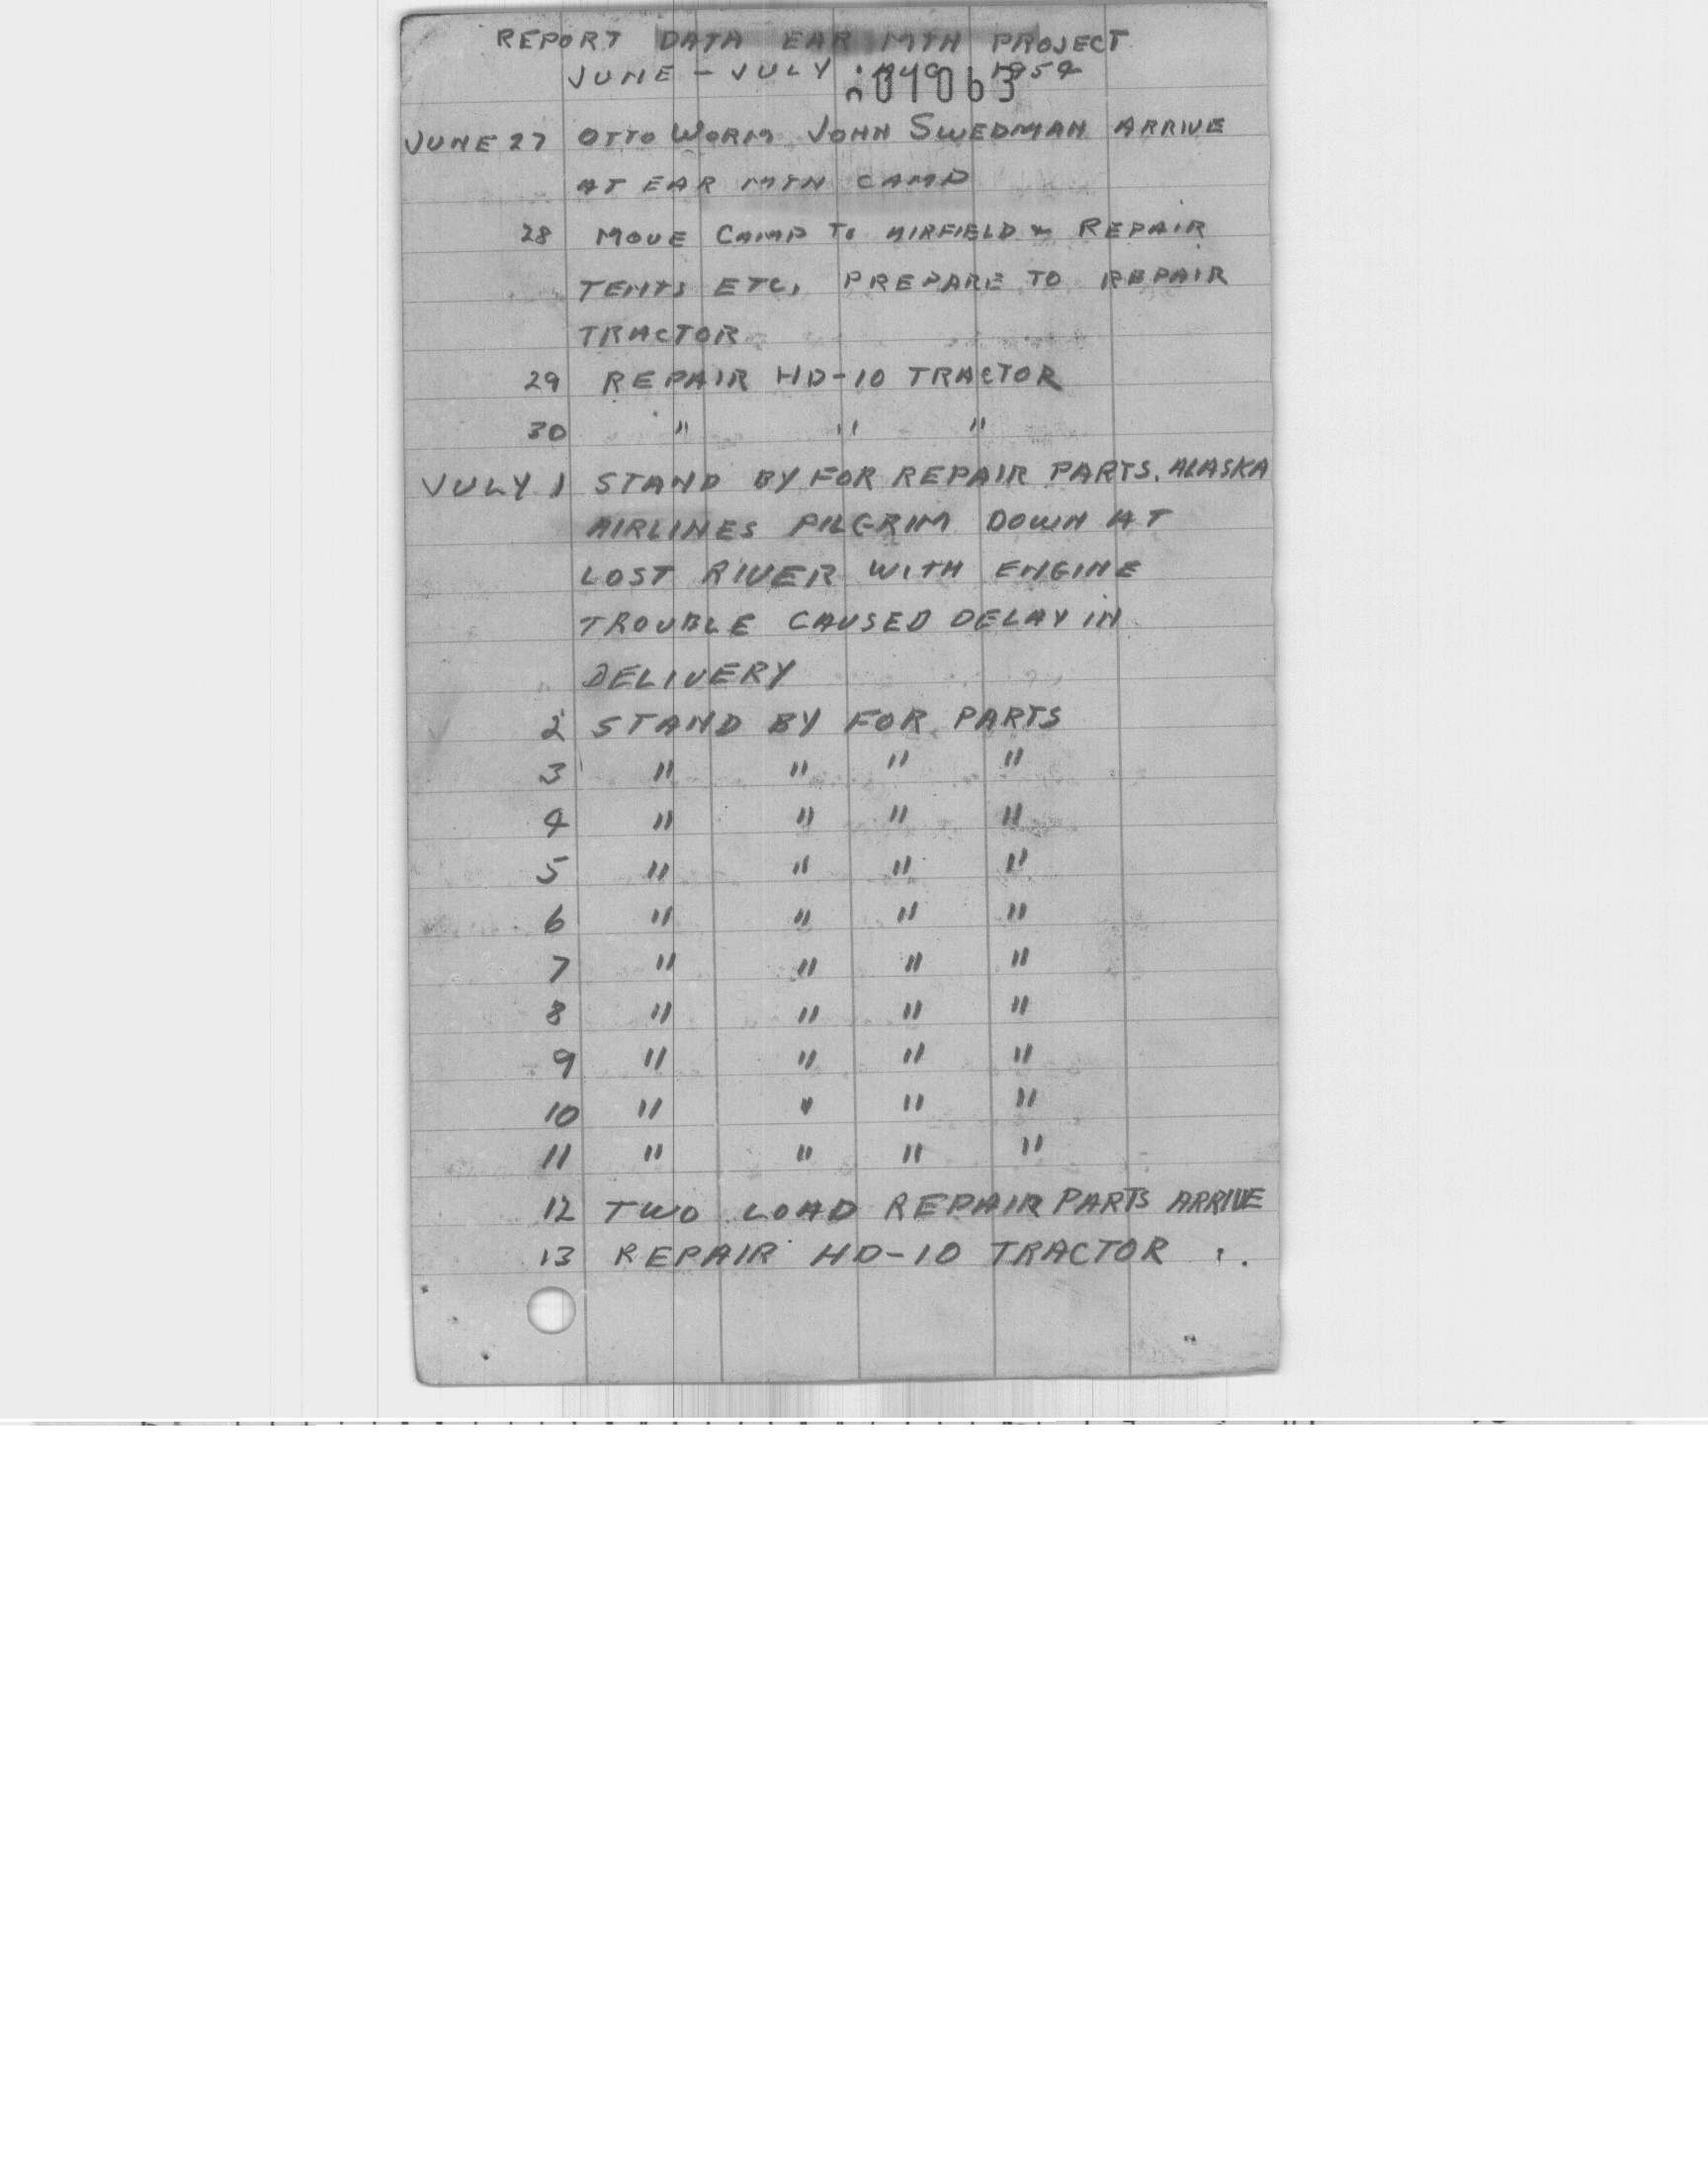 REPORT DATA EAR MTN PROJECT
JUNE - JULY AUG 1954
01063
JUNE 27 OTTO WORM JOHN SWEDMAN ARRIVE
AT EAR MTN CAMP
28 MOVE CAMP TO AIRFIELD & REPAIR
TENTS ETC, PREPARE TO REPAIR
TRACTOR
29 REPAIR HD-10 TRACTOR
30 " " "
JULY 1 STAND BY FOR REPAIR PARTS. ALASKA
AIRLINES PILGRIM DOWN AT
LOST RIVER WITH ENGINE
TROUBLE CAUSED DELAY IN
DELIVERY
2 STAND BY FOR PARTS
3 " " " "
4 " " " "
5 " " " "
6 " " " "
7 " " " "
8 " " " "
9 " " " "
10 " " " "
11 " " " "
12 TWO LOAD REPAIR PARTS ARRIVE
13 REPAIR HD-10 TRACTOR